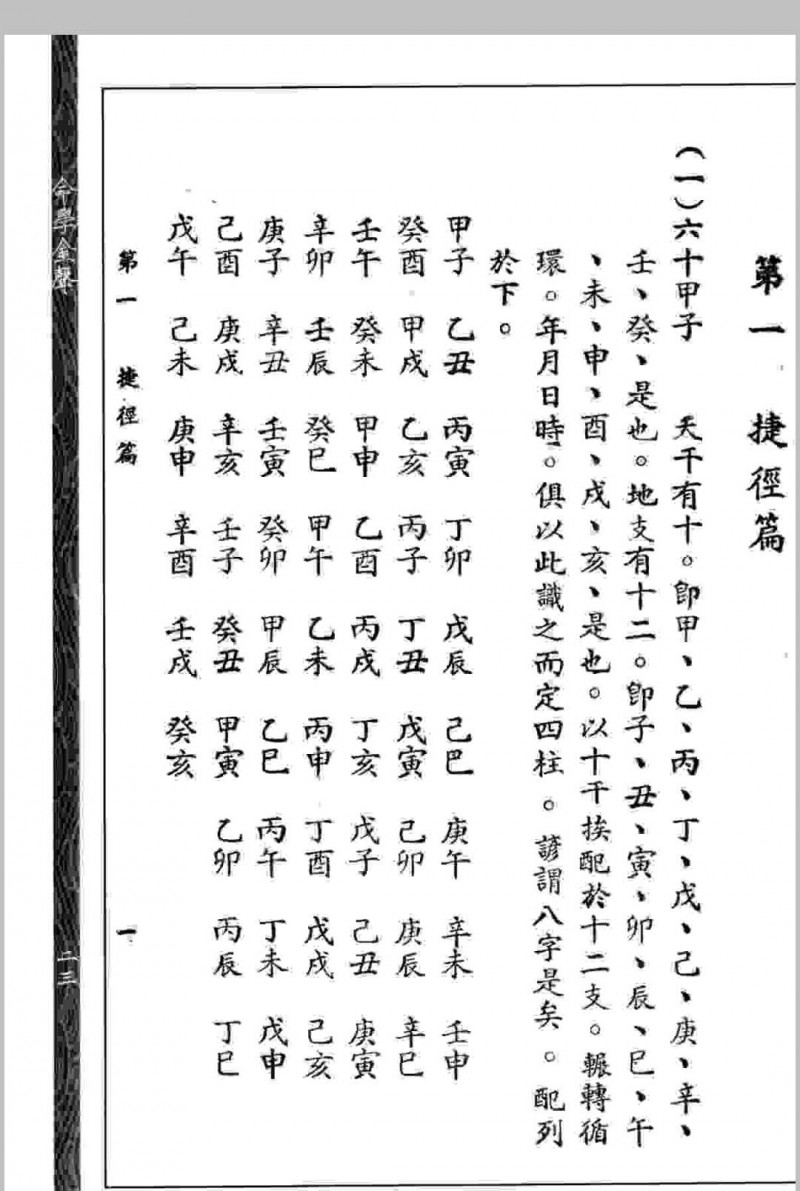 第一 捷徑篇
(一)六十甲子 天干有十。卽甲、乙、丙、丁、戊、己、庚、辛、
壬、癸、是也。地支有十二。卽子、丑、寅、卯、辰、巳、午
、未、申、酉、戌、亥、是也。以十干挨配於十二支。輾轉循
環。年月日時。俱以此識之而定四柱。諺謂八字是矣。配列
於下。
甲子 乙丑 丙寅 丁卯 戊辰 己巳 庚午 辛未 壬申
癸酉 甲戌 乙亥 丙子 丁丑 戊寅 己卯 庚辰 辛巳
壬午 癸未 甲申 乙酉 丙戌 丁亥 戊子 己丑 庚寅
辛卯 壬辰 癸巳 甲午 乙未 丙申 丁酉 戊戌 己亥
庚子 辛丑 壬寅 癸卯 甲辰 乙巳 丙午 丁未 戊申
己酉 庚戌 辛亥 壬子 癸丑 甲寅 乙卯 丙辰 丁巳
戊午 己未 庚申 辛酉 壬戌 癸亥
第一 捷徑篇 一
命學金聲 二三